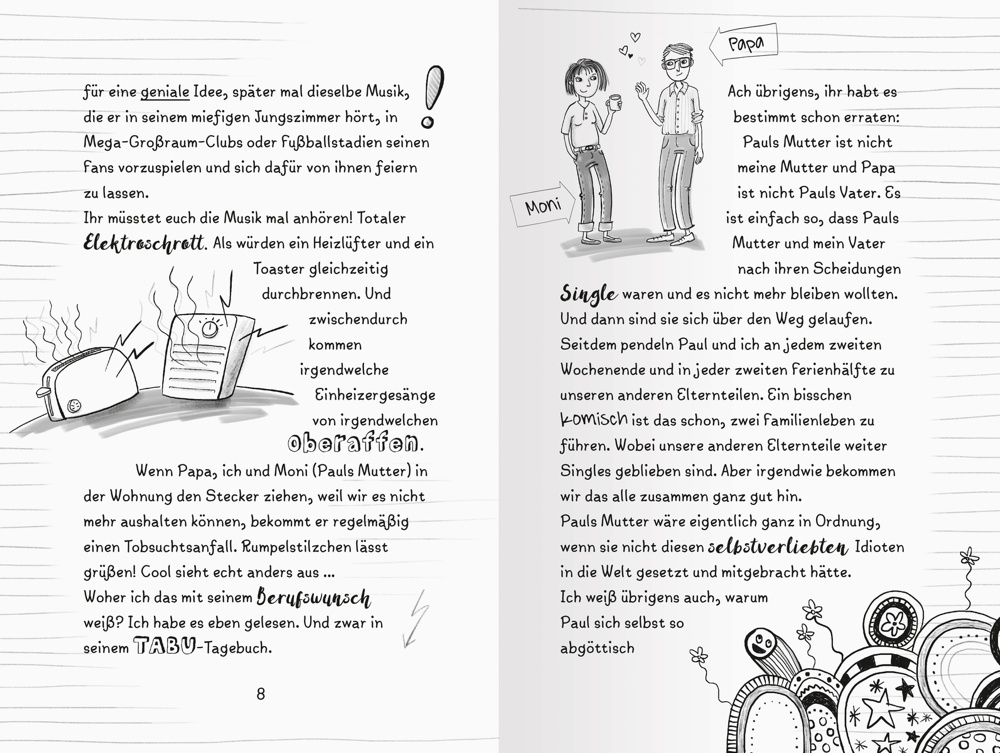 für eine geniale Idee, später mal dieselbe Musik,
die er in seinem miefigen Jungszimmer hört, in
Mega-Großraum-Clubs oder Fußballstadien seinen
Fans vorzuspielen und sich dafür von ihnen feiern
zu lassen.
Ihr müsstet euch die Musik mal anhören! Totaler
Elektroschrott. Als würden ein Heizlüfter und ein
Toaster gleichzeitig
durchbrennen. Und
zwischendurch
kommen
irgendwelche
Einheizergesänge
von irgendwelchen
Oberaffen.
Wenn Papa, ich und Moni (Pauls Mutter) in
der Wohnung den Stecker ziehen, weil wir es nicht
mehr aushalten können, bekommt er regelmäßig
einen Tobsuchtsanfall. Rumpelstilzchen lässt
grüßen! Cool sieht echt anders aus ...
Woher ich das mit seinem Berufswunsch
weiß? Ich habe es eben gelesen. Und zwar in
seinem TABU-Tagebuch.
8
Papa
Moni
Ach übrigens, ihr habt es
bestimmt schon erraten:
Pauls Mutter ist nicht
meine Mutter und Papa
ist nicht Pauls Vater. Es
ist einfach so, dass Pauls
Mutter und mein Vater
nach ihren Scheidungen
Single waren und es nicht mehr bleiben wollten.
Und dann sind sie sich über den Weg gelaufen.
Seitdem pendeln Paul und ich an jedem zweiten
Wochenende und in jeder zweiten Ferienhälfte zu
unseren anderen Elternteilen. Ein bisschen
komisch ist das schon, zwei Familienleben zu
führen. Wobei unsere anderen Elternteile weiter
Singles geblieben sind. Aber irgendwie bekommen
wir das alle zusammen ganz gut hin.
Pauls Mutter wäre eigentlich ganz in Ordnung,
wenn sie nicht diesen selbstverliebten Idioten
in die Welt gesetzt und mitgebracht hätte.
Ich weiß übrigens auch, warum
Paul sich selbst so
abgöttisch